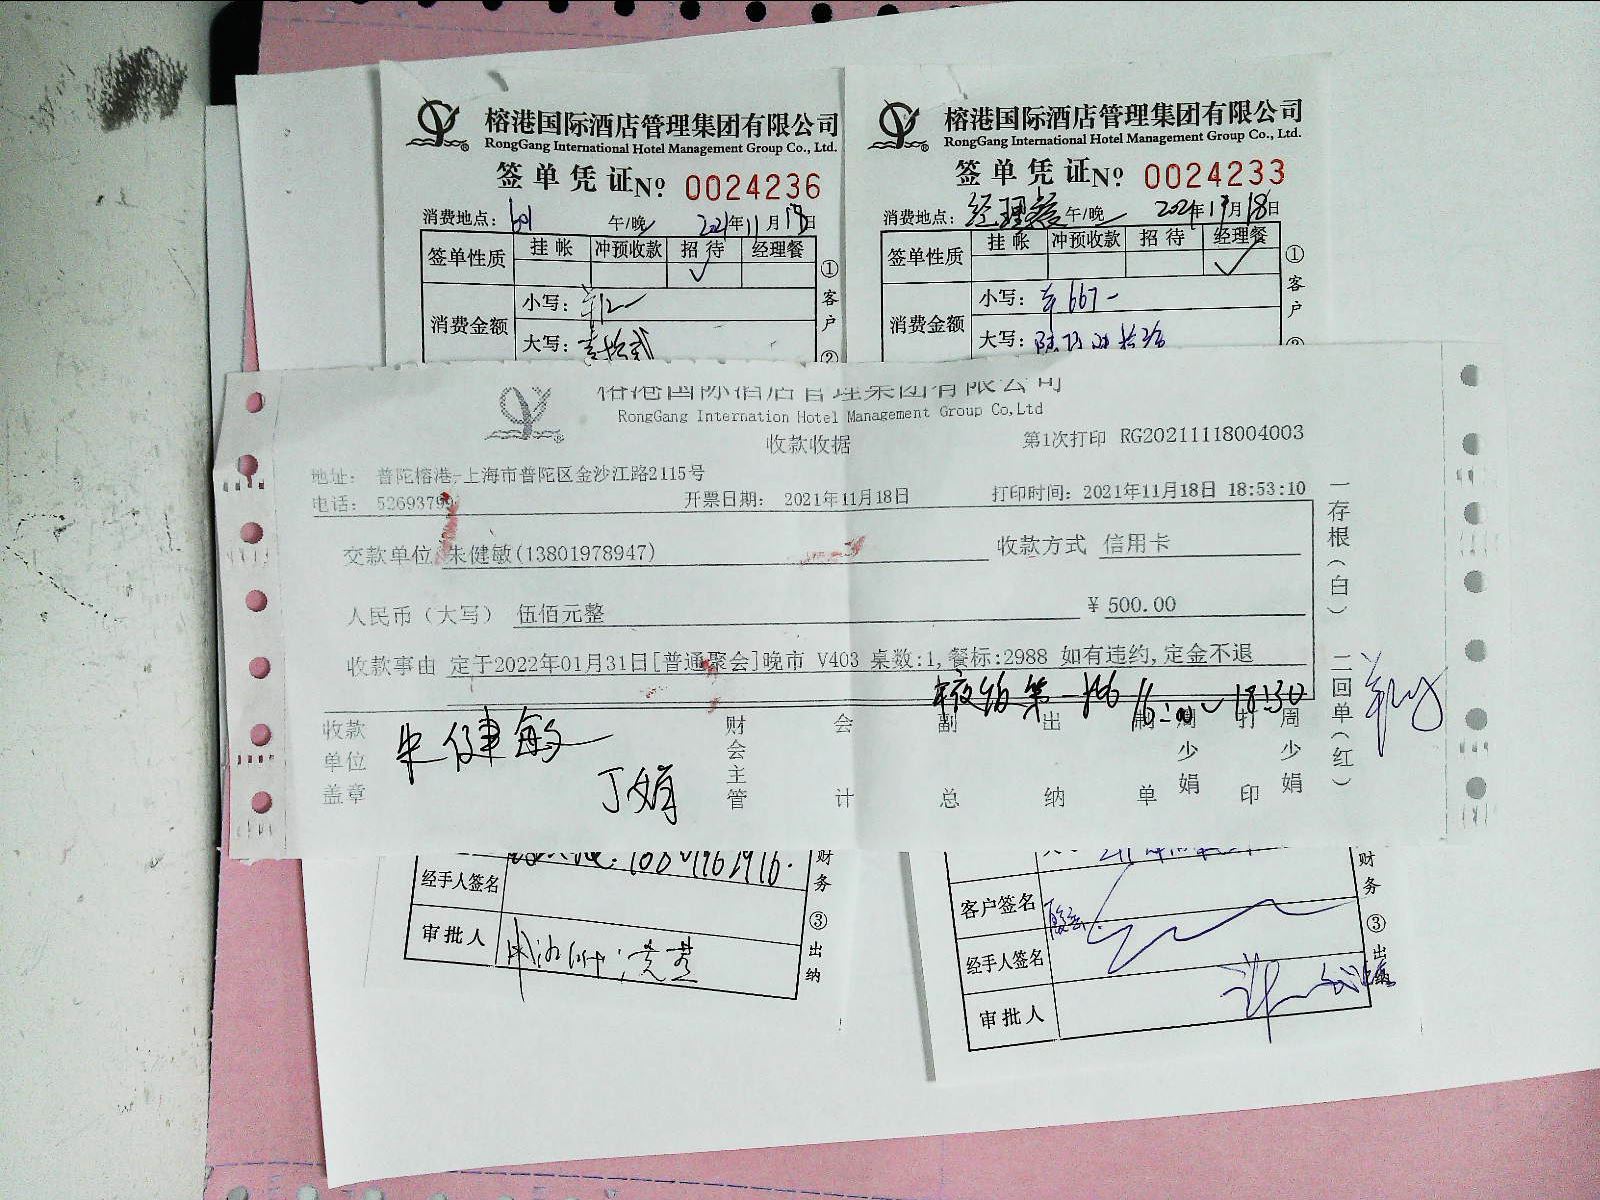 榕港国际酒店管理集团有限公司
RongGang International Hotel Management Group Co., Ltd.
签单凭证 No 0024236
消费地点：601 午/晚 2021年11月18日
签单性质 挂帐 冲预收款 招待 经理餐
消费金额 小写：¥12-
大写：壹拾贰
①客户
②
榕港国际酒店管理集团有限公司
RongGang International Hotel Management Group Co., Ltd.
签单凭证 No 0024233
消费地点：经理餐 午/晚 2021年11月18日
签单性质 挂帐 冲预收款 招待 经理餐
消费金额 小写：¥667-
大写：
①客户
②
榕港国际酒店管理集团有限公司
RongGang Internation Hotel Management Group Co,Ltd
收款收据
第1次打印 RG20211118004003
地址： 普陀榕港-上海市普陀区金沙江路2115号
电话： 52693799 开票日期： 2021年11月18日 打印时间：2021年11月18日 18:53:10
交款单位 朱健敏(13801978947) 收款方式 信用卡
人民币（大写） 伍佰元整 ¥ 500.00
收款事由 定于2022年01月31日[普通聚会]晚市 V403 桌数:1,餐标:2988 如有违约,定金不退
16:00 18:30
收款单位盖章 朱健敏 丁娟 财会主管 会计 副总 出纳 制单 周少娟 打印 周少娟
一存根（白） 二回单（红）
经手人签名
审批人
财务 ③出纳
客户签名
经手人签名
审批人
财务 ③出纳